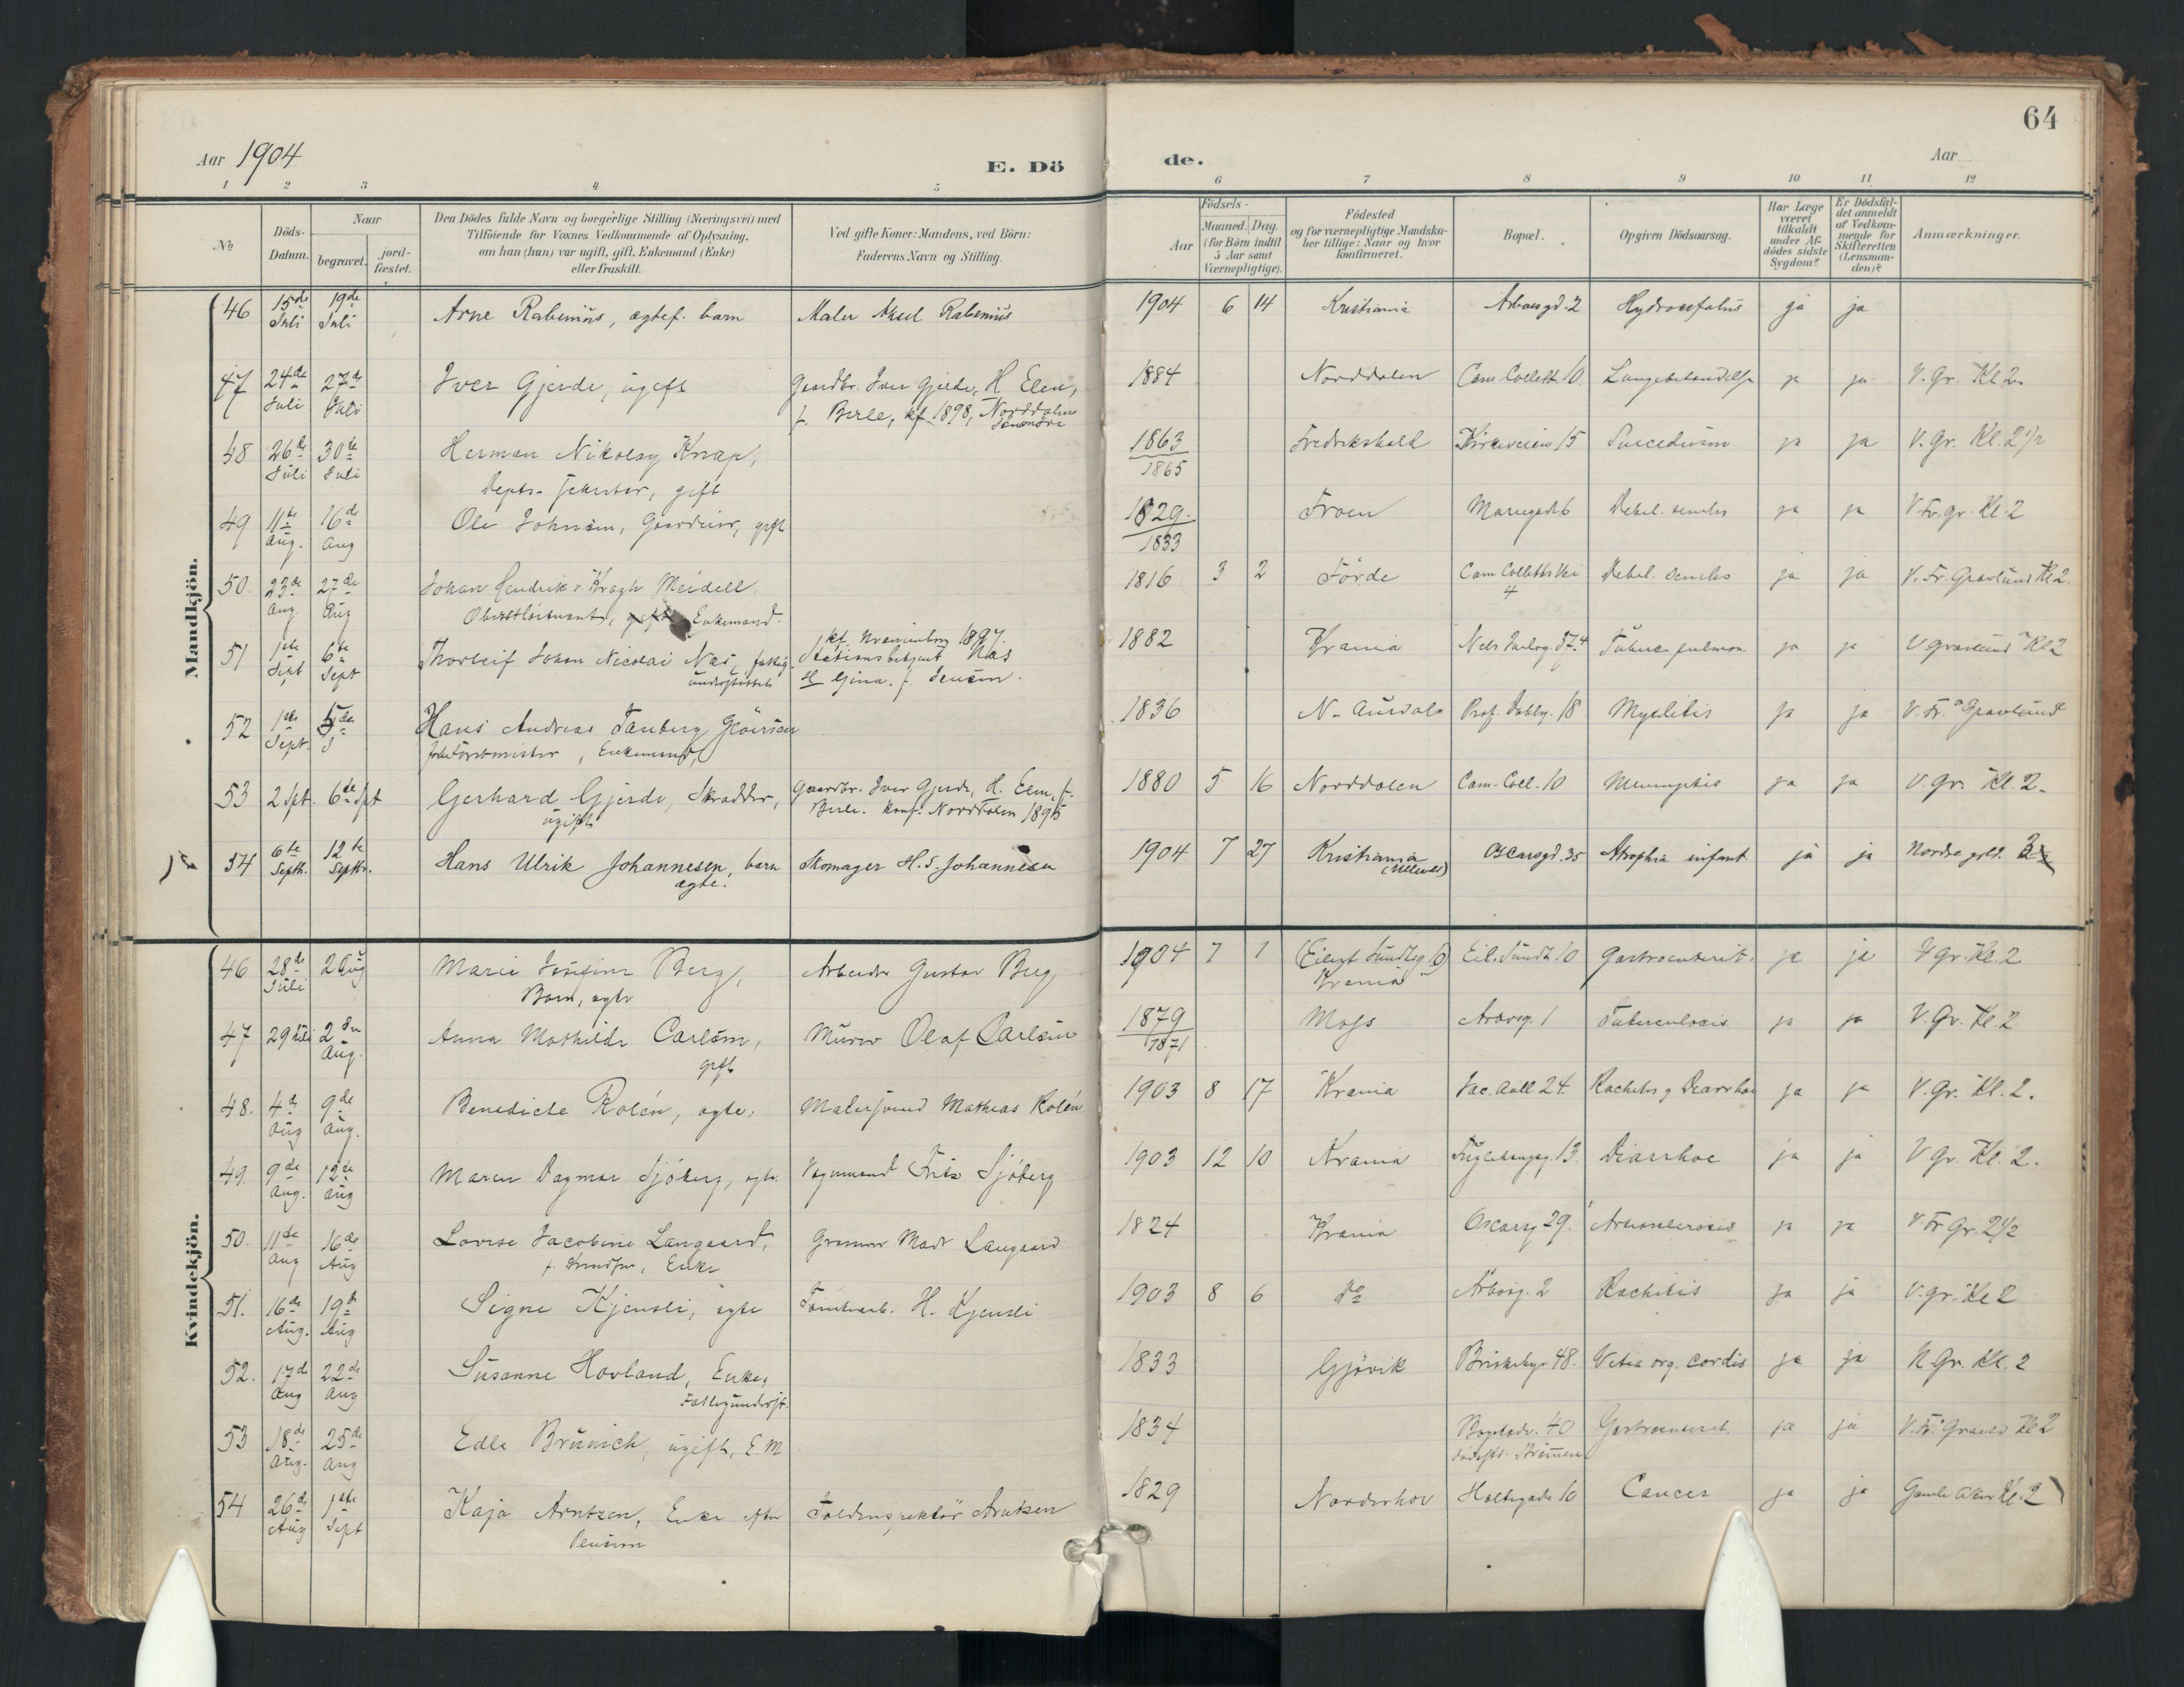 64
Aar 1904
E. Dö
de.
Aar
1 2 3 4 5 6 7 8 9 10 11 12
No
Döds-Datum.
Naar
begravet.
jord-fæstet.
Den Dödes fulde Navn og borgerlige Stilling (Næringsvei) med
Tilföiende for Voxnes Vedkommende af Oplysning,
om han (hun) var ugift, gift, Enkemand (Enke)
eller fraskilt.
Ved gifte Koner: Mandens, ved Börn:
Faderens Navn og Stilling.
Födsels-
Aar
Maaned. Dag.
(for Börn indtil
5 Aar samt
Værnepligtige).
Födested
og for værnepligtige Mandska-
ber tillige: Naar og hvor
konfirmeret.
Bopæl.
Opgiven Dödsaarsag.
Har Læge
været
tilkaldt
under Af-
dödes sidste
Sygdom?
Er Dödsfal-
det anmeldt
af Vedkom-
mende for
Skifteretten
(Lensman-
den)?
Anmærkninger.
Mandkjön.
46 15de Juli 19de Juli Arne Rabenius, ægtef. barn Maler Aksel Rabenius 1904 6 14 Kristiania Arbosgd. 2 Hydrocefalus ja ja
47 24de Juli 27de Juli Iver Gjerde, ugift Gaardbr. Iver Gjerde, H. Elen, 1884 Norddalen Cam. Collett. 10 ja ja V. Gr. Kl 2.
f. Berle, kf. 1898, Norddalen
48 26de Juli 30te Juli Herman Nikolay Knap, 1863 Fredrikshald Kirkeveien 15 ja ja V. Gr. Kl. 2 1/2
1865
gift
49 11te Aug. 16de Aug Ole Johnsen, gift 1829. Froen Mariegade 6 Debil. senilis ja ja V. Fr. gr. Kl. 2
1833
50. 23de Aug. 27de Aug Johan Hendrik v. Kragh Meidell. 1816 3 2 Förde Cam Colletts Vei Debil. senilis ja ja V. Fr. Gravlund Kl 2.
4
Oberstlöitnant, gift Enkemand.
51 1ste Sept 6te Sept Thorleif Johan Nicolai Næs, fattig- 1882 Krania Tuberc. pulmon. ja ja V Gravlund Kl 2
understöttet
kf. Uranienborg 1897.
Stationsbetjent Næs
H. Gina, f. Jensen.
52 1ste Sept. 5de S Hans Andreas Tanberg Glöersen 1836 N. Aurdal Prof. Dahlsg. 18 Myelitis ja ja V. Fr. Gravlund
Enkemand,
53 2 Spt. 6te Spt Gerhard Gjerde, Skrædder, Gaardbr. Iver Gjerde, H. Elen, f. 1880 5 16 Norddalen Cam. Coll. 10 ja ja V. Gr. Kl. 2.
ugift
Berle. Konf. Norddalen 1895
54 6te Septb. 12te Septbr. Hans Ulrik Johannesen, barn Skomager H. S. Johannesen 1904 7 27 Kristiania Oscarsgd. 35 Atrophia infant. ja ja Nordre grld. 2
ægte.
(Ullevål)
Kvindekjön.
46 28de Juli 2 Aug Marie Josefine Berg, Arbeider Gustav Berg 1904 7 1 (Eilert Sundtsg. 6) Eil. Sundt. 10 Gastroenterit. ja ja V gr. Kl. 2
Barn, ægte
Krania
47 29 Juli 2den Aug. Anna Mathilde Carlsen, Murer Olaf Carlsen 1879 Moss Arbosg. 1 Tuberculosis. ja ja V. Gr. Kl. 2
gift
1871
48. 4de Aug 9de Aug. Benedicte Rolén, ægte, Malersvend Mathias Rolén 1903 8 17 Krania Jac. Aall 24. Rachitis og Diarrhoe ja ja V. Gr. Kl. 2.
49. 9de Aug. 12te Aug Maren Dagmar Sjöberg, ægte. Vognmand Fritz Sjöberg 1903 12 10 Krania Fuglehaugsg. 13. Diarrhoe ja ja V Gr. Kl. 2.
50. 11te Aug 16de Aug Lovise Jacobine Langaard, Mads Langaard 1824 Krania Oscarsg 29. Arteriosclerosis ja ja V. Fr Gr. 2 1/2
Enke
51. 16de Aug. 19de Aug Signe Kjensli, ægte Tomtearb. H. Kjensli 1903 8 6 do Arbosg. 2 Rachitis ja ja V. gr. Kl 2
52. 17de Aug 22de Aug Susanne Hovland, Enke, 1833 Gjövik Briskebyv. 48. Vitia org. cordis ja ja N. Gr. Kl. 2
Fattigunderst.
53 18de Aug. 25de Aug Edle Brünich, ugift, E. M 1834 Bogstadv. 40 Gastroenterit. ja ja V. Fr. Gravld Kl 2
54 26de Aug 1ste Sept Kaja Arntzen, Enke efter Toldinspektör Arntzen 1829 Norderhov Holtegade 10 Cancer ja ja Gamle Aker Kl. 2
Pension